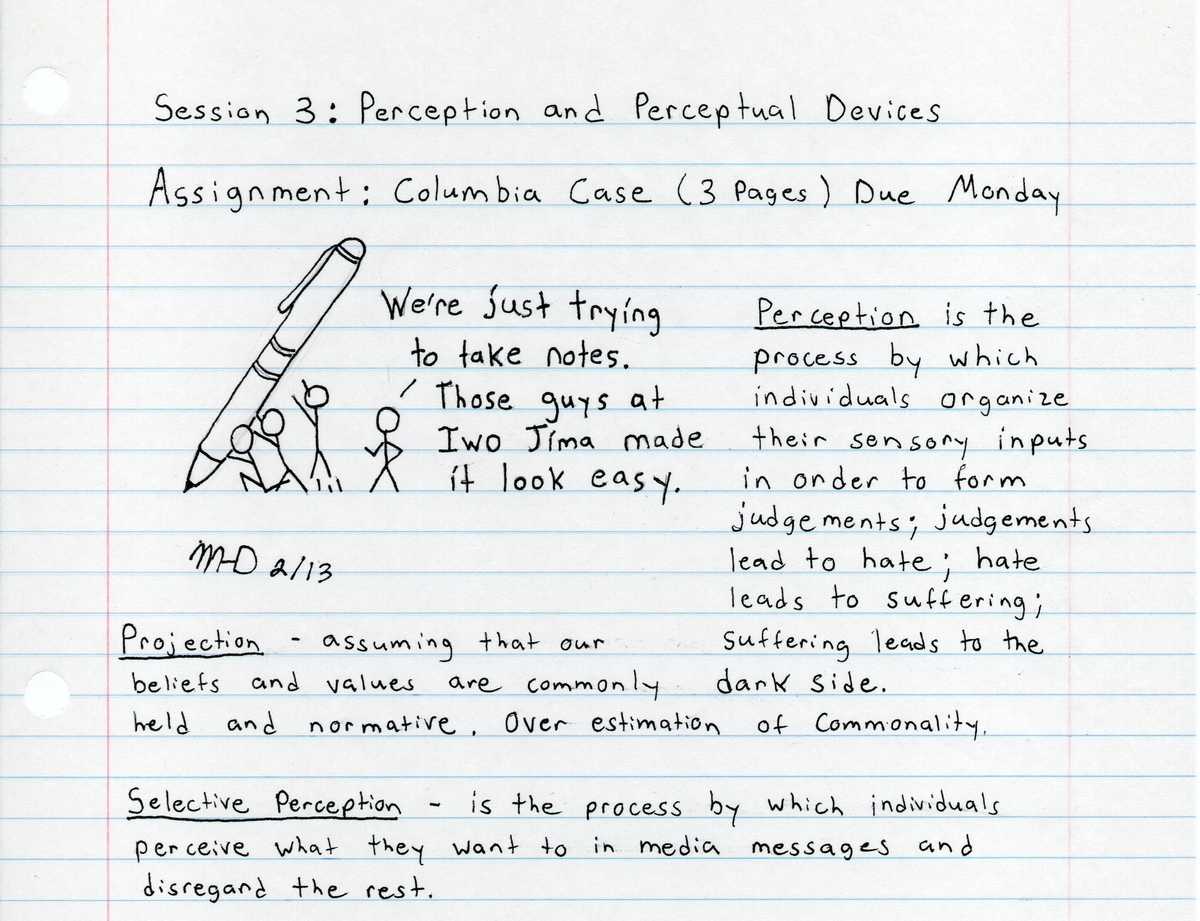 Session 3: Perception and Perceptual Devices
Assignment: Columbia Case (3 Pages) Due Monday
We're just trying
to take notes.
Those guys at
Iwo Jima made
it look easy.
M-D 2/13
Perception is the
process by which
individuals organize
their sensory inputs
in order to form
judgements; judgements
lead to hate; hate
leads to suffering;
suffering leads to the
dark side.
Projection - assuming that our
beliefs and values are commonly
held and normative. Over estimation of Commonality.
Selective Perception - is the process by which individuals
perceive what they want to in media messages and
disregard the rest.